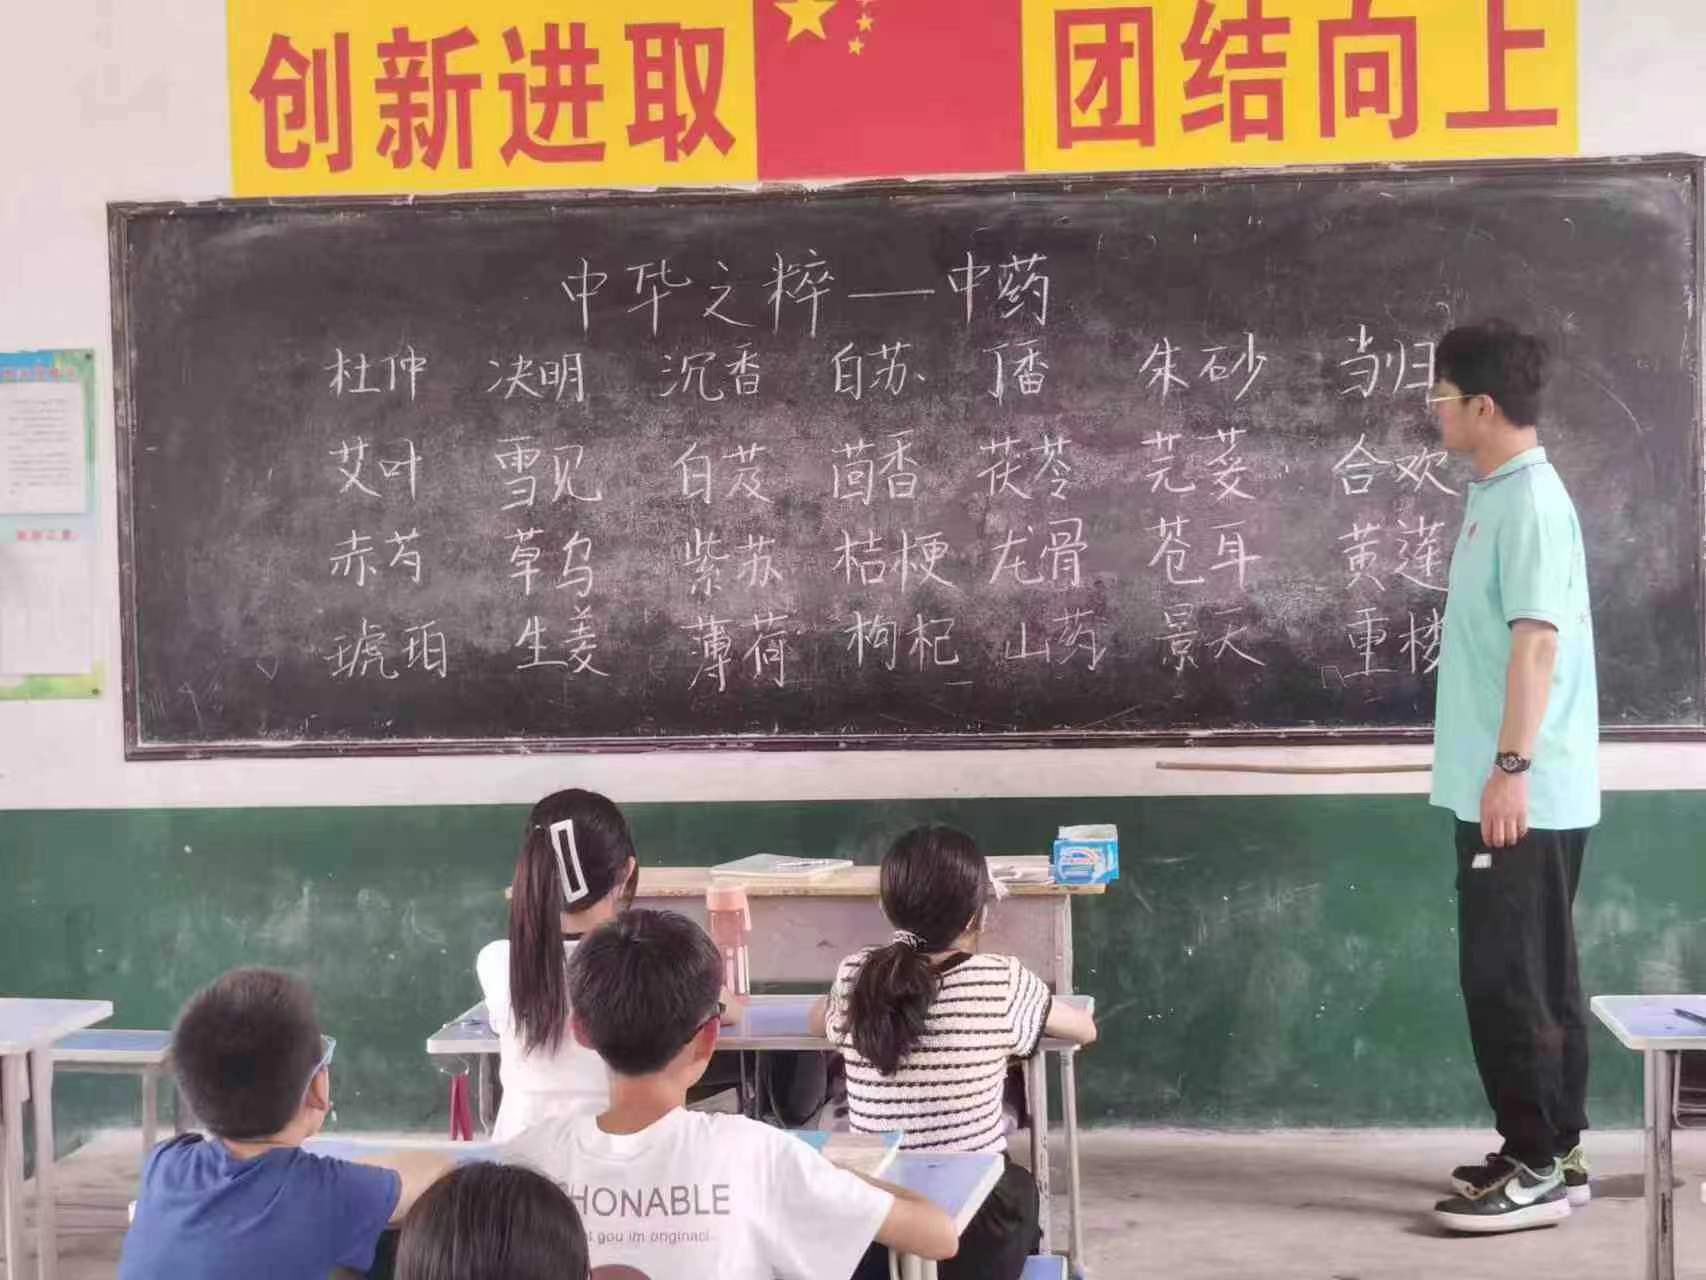 创新进取 团结向上
中华之粹——中药
杜仲 决明 沉香 白苏 丁香 朱砂 当归
艾叶 雪见 白芨 茴香 茯苓 芫荽 合欢
赤芍 草乌 紫苏 桔梗 龙骨 苍耳 黄莲
琥珀 生姜 薄荷 枸杞 山药 景天 重楼
HONABLE